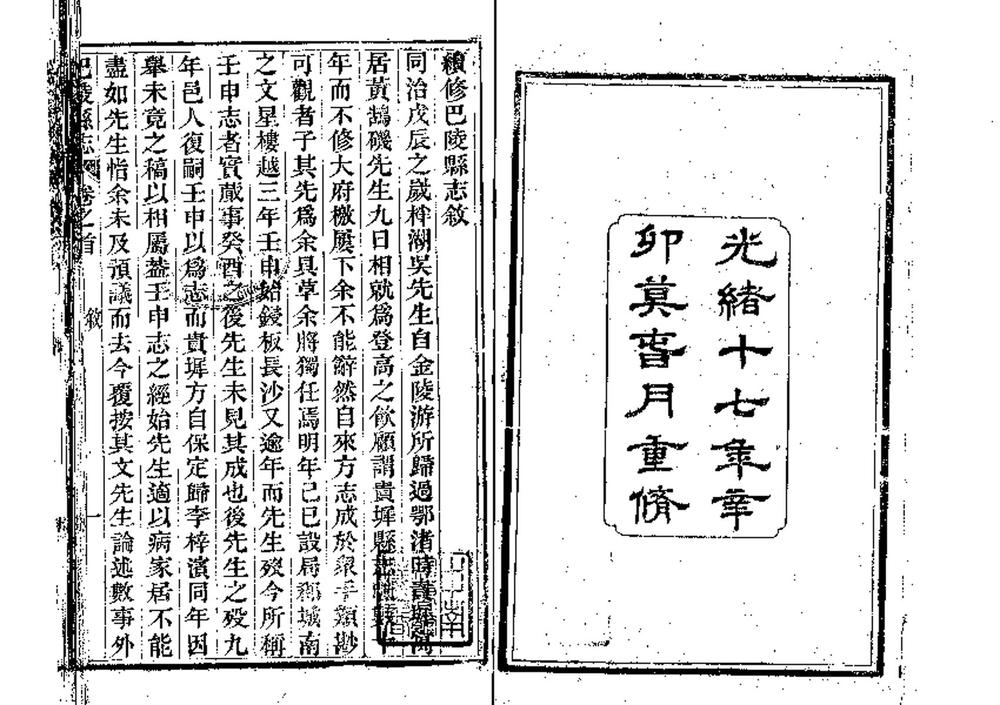 光緒十七年辛
卯蓂春月重脩
續修巴陵縣志敘
同治戊辰之歲梣湖吳先生自金陵游所歸過鄂渚時貴墀寓
居黃鵠磯先生九日相就爲登高之飲顧謂貴墀縣志
年而不修大府檄屢下余不能辭然自來方志成於眾手類尠
可觀者子其先爲余具草余將獨任焉明年己巳設局郡城南
之文星樓越三年壬申始鋟板長沙又逾年而先生歿今所稱
壬申志者實蕆事癸酉之後先生未見其成也後先生之歿九
年邑人復嗣壬申以爲志而貴墀方自保定歸李梓濱同年因
舉未竟之稿以相屬蓋壬申志之經始先生適以病家居不能
盡如先生恉余未及預議而去今覆按其文先生論述數事外
巴陵縣志 卷之首 敘 一